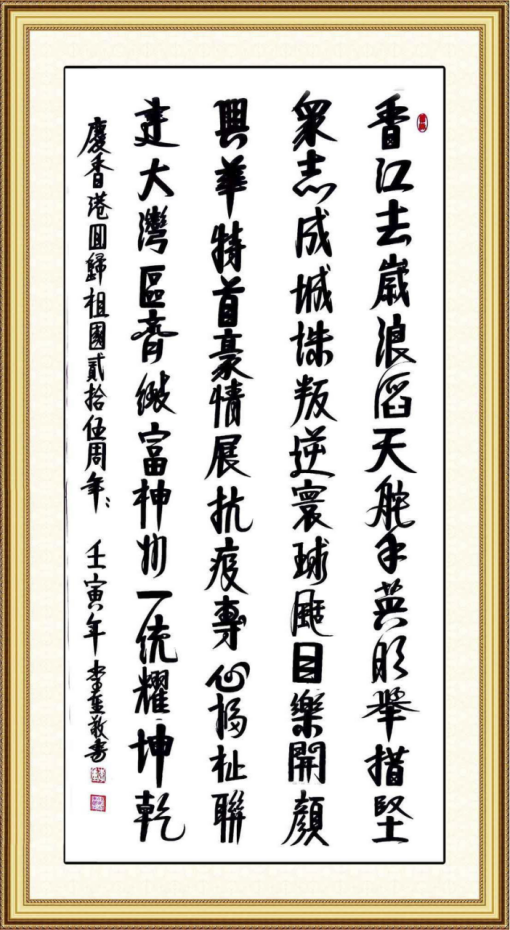 香江去歲浪滔天舵手英明舉措堅
眾志成城誅叛逆寰球颳目樂開顏
興華特首豪情展抗疫專心福祉聯
建大灣區齊緻富神州一統耀坤乾
慶香港回歸祖國貳拾伍周年 壬寅年李敬書